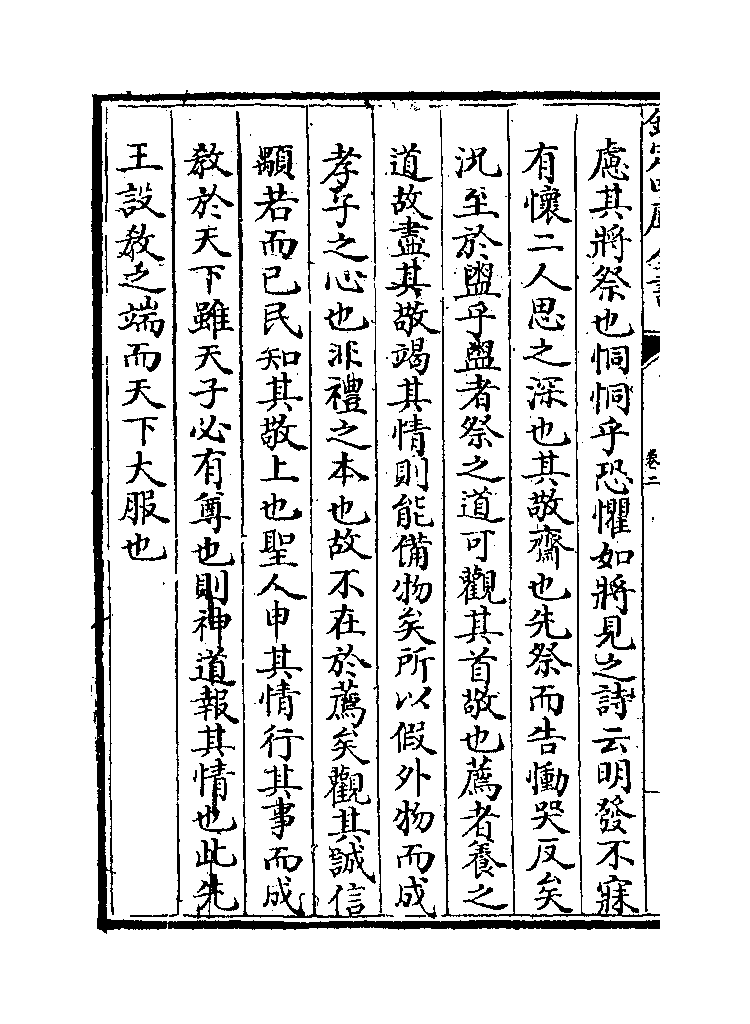 欽定四庫全書
卷二
慮其將祭也恫恫乎恐懼如將見之詩云明發不寐
有懷二人思之深也其敬齋也先祭而告慟哭反矣
況至於盥乎盥者祭之道可觀其首敬也薦者養之
道故盡其敬竭其情則能備物矣所以假外物而成
孝子之心也非禮之本也故不在於薦矣觀其誠信
顒若而已民知其敬上也聖人申其情行其事而成
教於天下雖天子必有尊也則神道報其情也此先
王設教之端而天下大服也